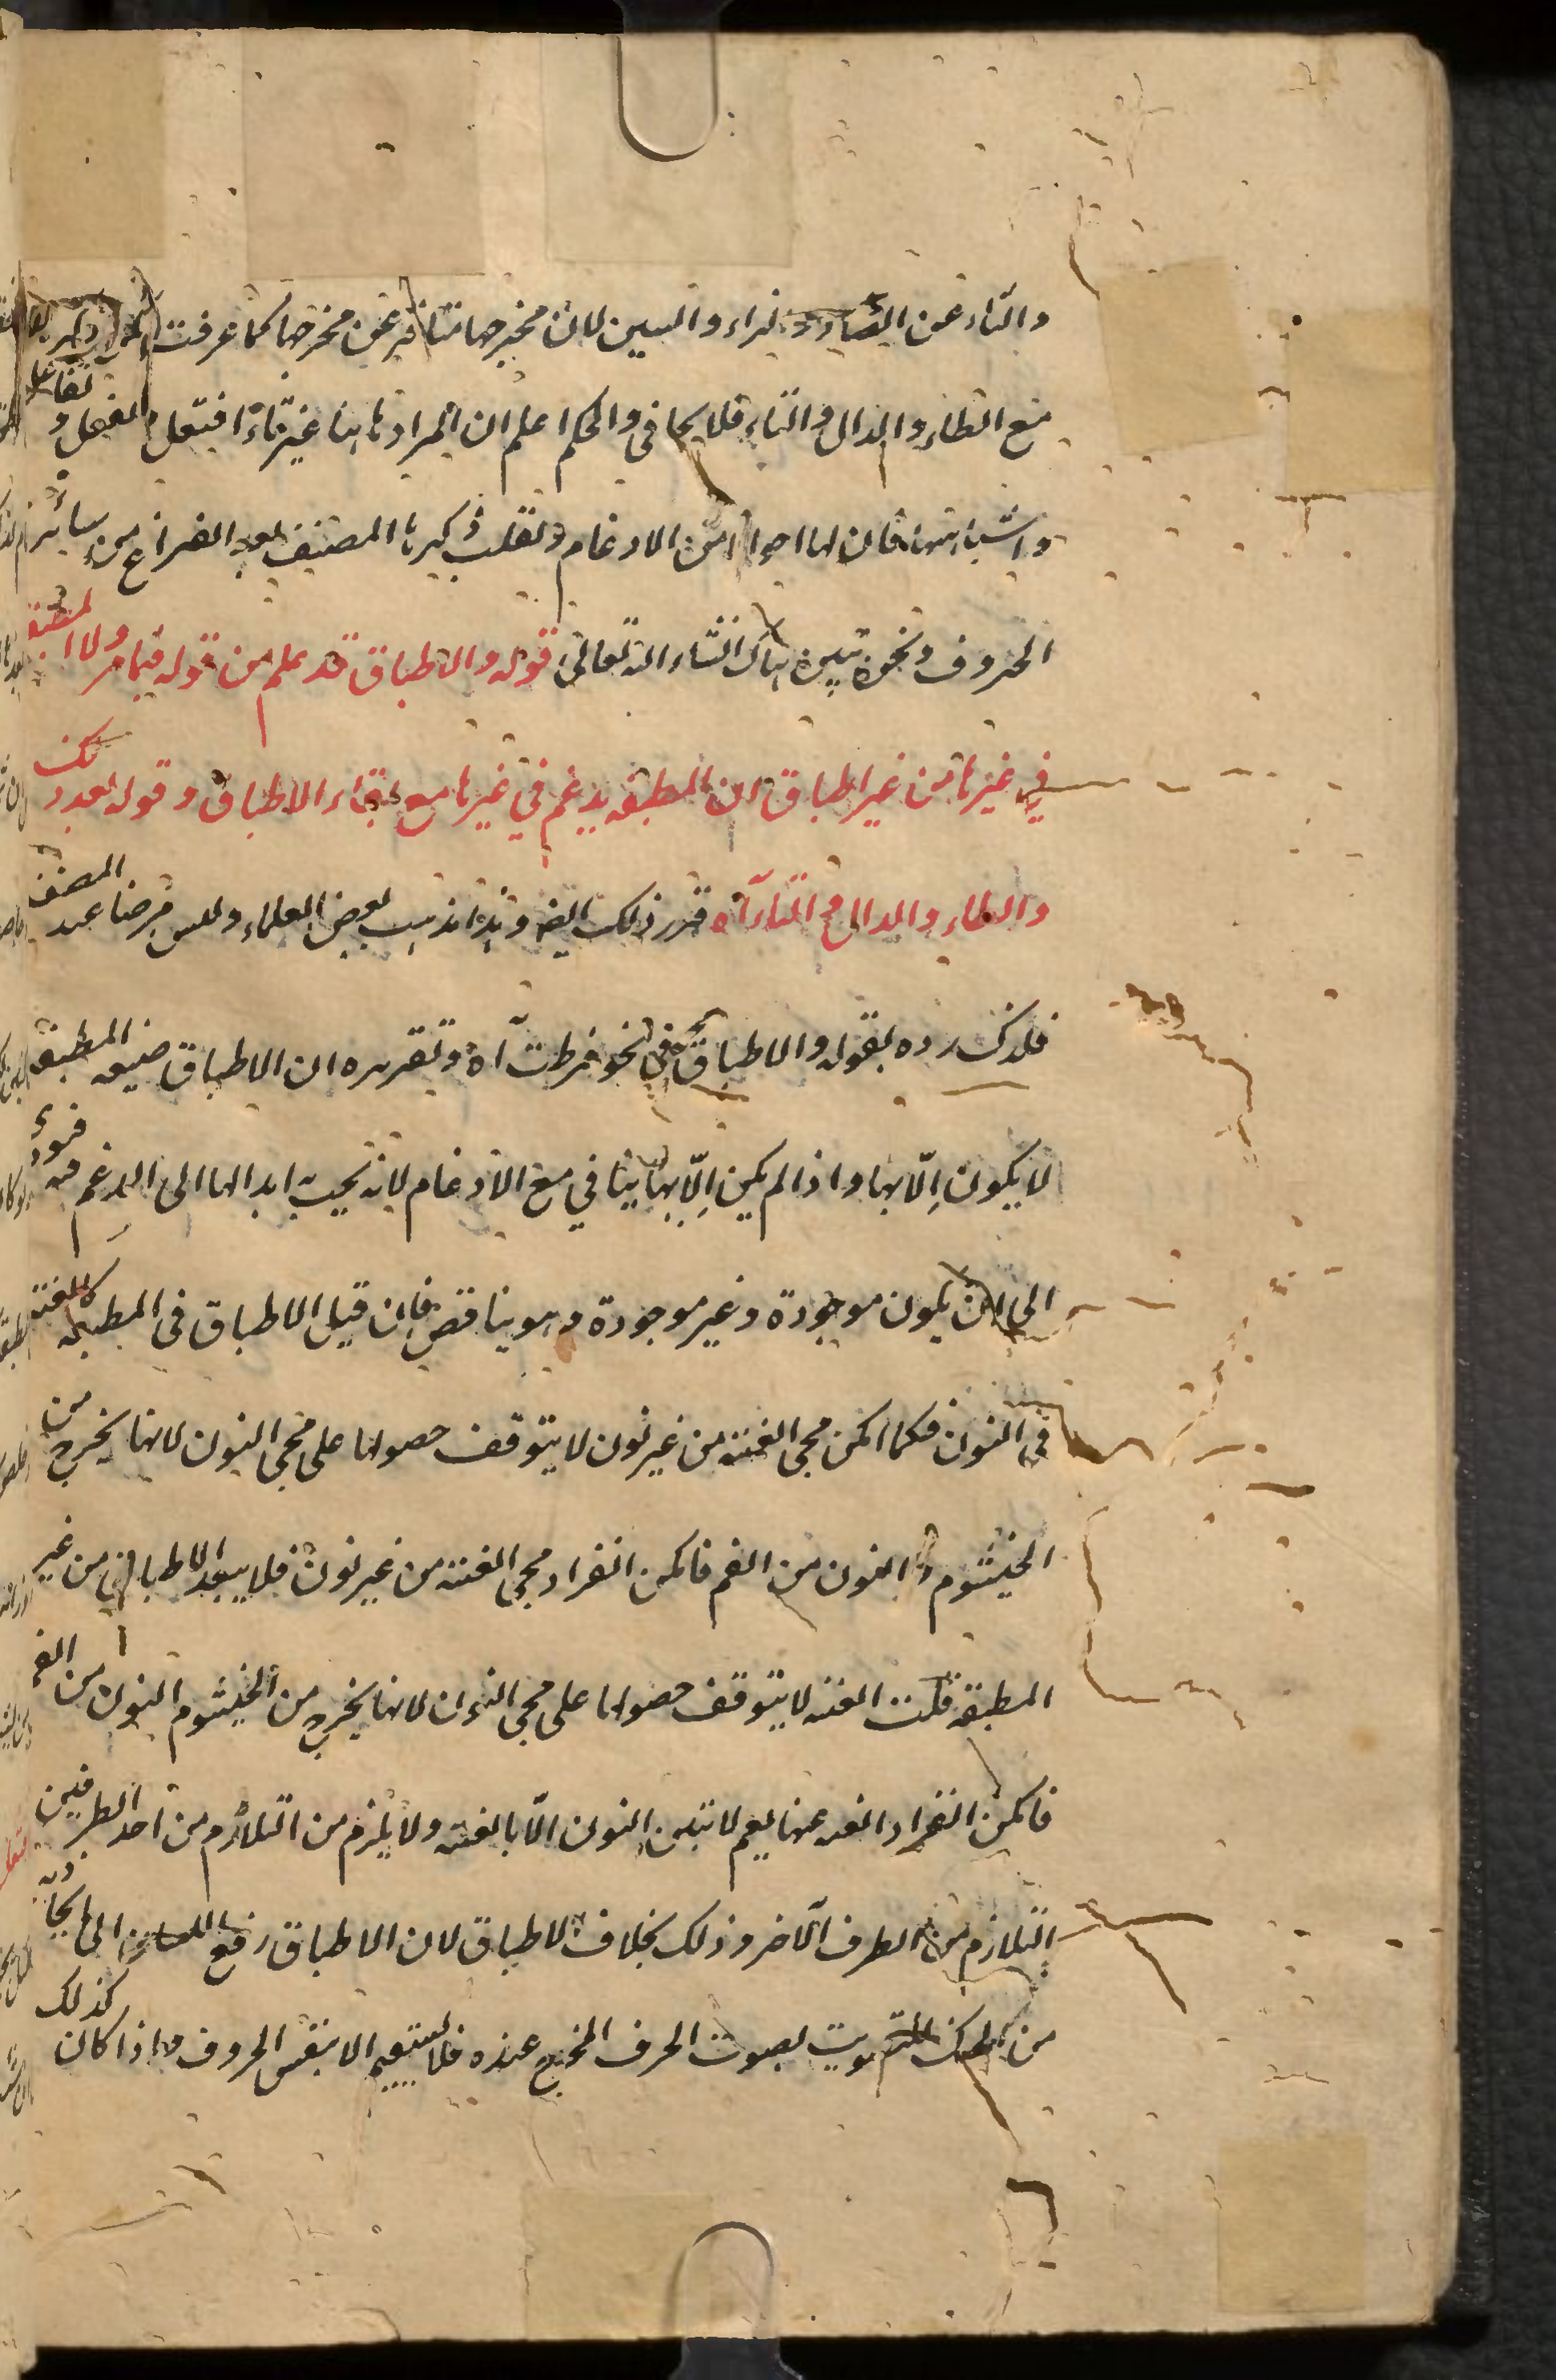 والتاء عن الصاد والزاء والسين لان مخرجها متنافر عن مخرجها كما عرفت
مع الطاء والدال والتاء فلا يجافى والحكم اعلم ان المراد هاهنا غير تاء افتعل و تفعل و تفاعل
واشباهها فان لها احوالا من الادغام والقلب ذكرها المصنف بعد الفراغ من سائر
الحروف ونحن نبين هناك انشاء الله تعالى قوله والاطباق قد علم من قوله فيما مر ولا المطبقة
في غيرها من غير اطباق ان المطبقة يدغم في غيرها مع بقاء الاطباق وقوله بعد ذلك
والطاء والدال والتاء آه قرر ذلك ايضا وهذا مذهب بعض العلماء وليس مرضيا عند المصنف
فلذلك رده بقوله والاطباق في نحو فرطت آه وتقريره ان الاطباق صفة المطبقة
لا يكون إلّا بها واذا لم يكن إلّا بها ينافي مع الادغام لانه يجب ابدالها الى المدغم فيه فيؤدي
الى ان يكون موجودة وغير موجودة وهو يناقض فإن قيل الاطباق في المطبقة كالغنة
في النون فكما امكن مجي الغنة من غير نون لا يتوقف حصولها على مجي النون لانها يخرج من
الخيشوم والنون من الفم فامكن انفراد مجي الغنة من غير نون فلا يبعد الاطباق من غير
المطبقة قلت الغنة لا يتوقف حصولها على مجي النون لانها يخرج من الخيشوم والنون من الفم
فامكن انفراد الغنة عنها نعم لا تبين النون الّا بالغنة ولا يلزم من التلازم من احد الطرفين
التلازم من الطرف الآخر وذلك بخلاف الاطباق لان الاطباق رفع اللسان الى ما يحاذيه
من الحنك للتصويت بصوت الحرف المخرج عنده فلا يستقيم الا بنفس الحروف واذا كان كذلك